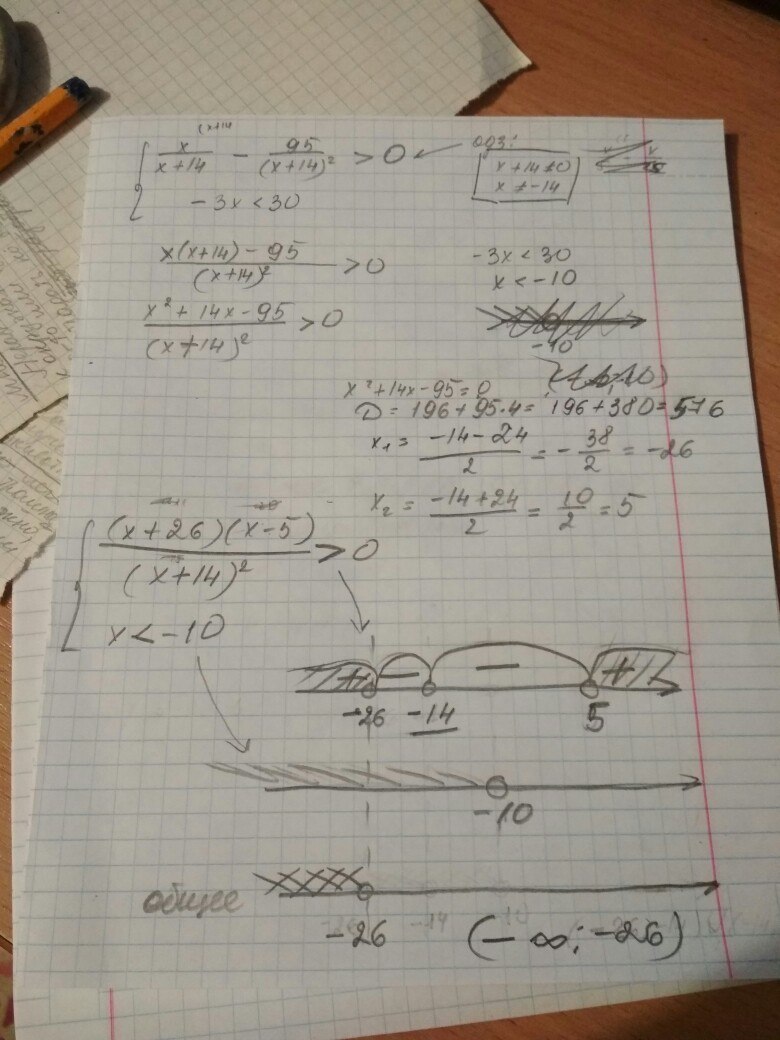 x/(x+14) - 95/(x+14)² > 0
(x+14
- 3x < 30
ОДЗ:
x + 14 ≠ 0
x ≠ -14
(x(x+14) - 95)/(x+14)² > 0
(x² + 14x - 95)/(x+14)² > 0
- 3x < 30
x < -10
-10
x² + 14x - 95 = 0
D = 196 + 95·4 = 196 + 380 = 576
x₁ = (-14 - 24)/2 = - 38/2 = -26
x₂ = (-14 + 24)/2 = 10/2 = 5
((x + 26)(x - 5))/(x+14)² > 0
x < -10
+ - - +
-26 -14 5
-10
общее
-26 -14 -10
(- ∞; -26)